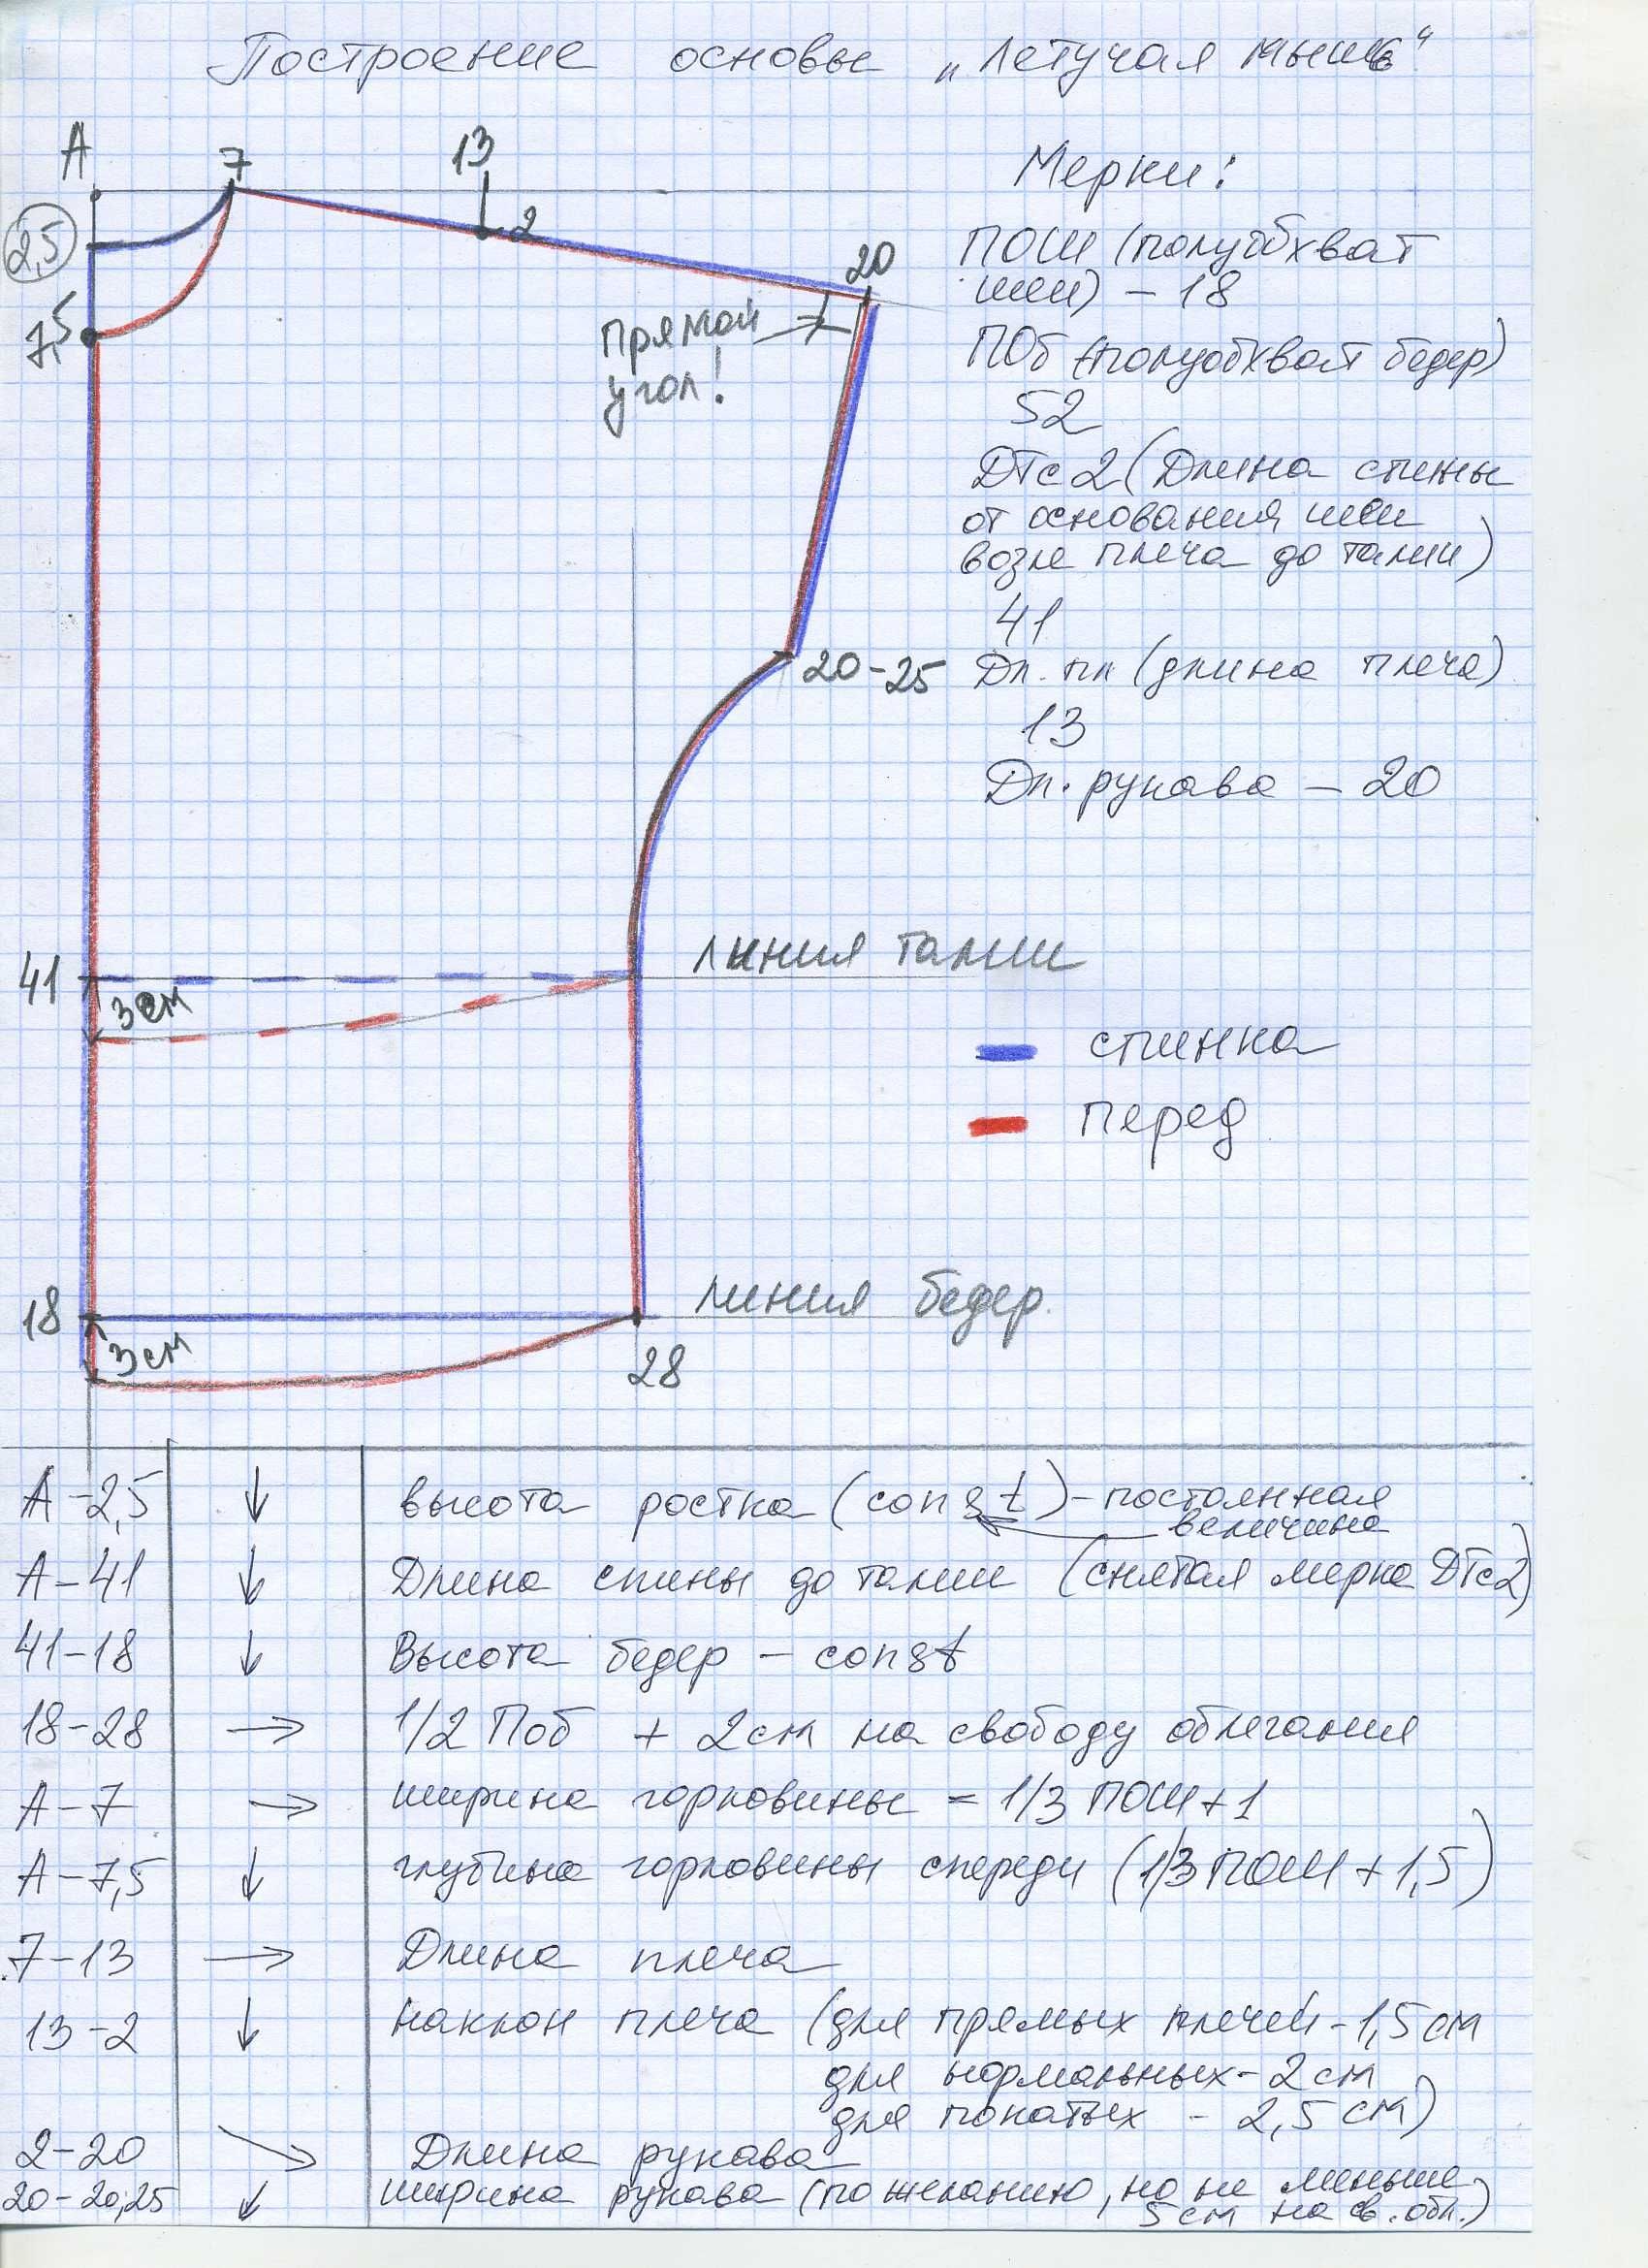 Построение основы „Летучая мышь"
А
7
13
2
2,5
7,5
20
прямой
угол!
20-25
Мерки:
ПОШ (полуобхват
шеи) – 18
ПОб (полуобхват бедер)
52
ДТс2 (Длина спины
от основания шеи
возле плеча до талии)
41
Дл. пл (длина плеча)
13
Дл. рукава – 20
41
3 см
линия талии
спинка
перед
18
3 см
линия бедер.
28
А-2,5 ↓ высота ростка (const) - постоянная
величина
А-41 ↓ Длина спины до талии (снятая мерка ДТс2)
41-18 ↓ Высота бедер – const
18-28 → 1/2 Поб + 2 см на свободу облегания
А-7 → ширина горловины = 1/3 ПОШ + 1
А-7,5 ↓ глубина горловины спереди (1/3 ПОШ + 1,5)
7-13 → Длина плеча
13-2 ↓ наклон плеча (для прямых плечей - 1,5 см
для нормальных - 2 см
для покатых - 2,5 см)
2-20 ↘ Длина рукава
20-20,25 ↓ ширина рукава (по желанию, но не меньше
5 см на св. обл.)